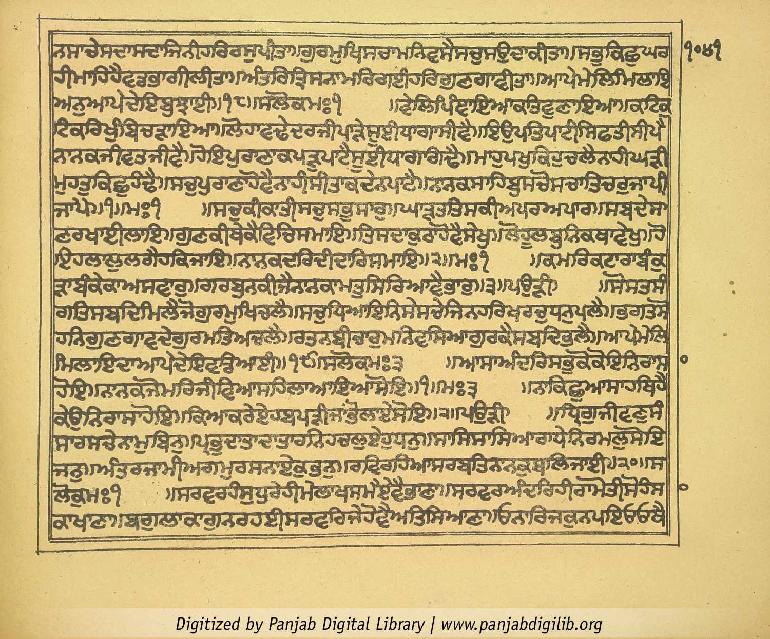 ਨਸਾਚੇਸਦਾਸਦਾਜਿਨੀਹਰਿਰਸੁਪੀਤਾ॥ਗੁਰਮੁਖਿਸਚਾਮਨਿਵਸੈਸਚੁਸਉਦਾਕੀਤਾ॥ਸਭੁਕਿਛੁਘਰ ੧੦੪੧
ਹੀਮਾਹਿਹੈਵਡਭਾਗੀਲੀਤਾ॥ਅੰਤਰਿਤ੍ਰਿਸਨਾਮਰਿਗਈਹਰਿਗੁਣਗਾਵੀਤਾ॥ਆਪੇਮੇਲਿਮਿਲਾਇ
ਅਨੁਆਪੇਦੇਇਬੁਝਾਈ॥੧੮॥ਸਲੋਕਮਃ੧ ॥ਵੇਲਿਪਿੰਞਾਇਆਕਤਿਵੁਣਾਇਆ॥ਕਟਿਕੁ
ਟਿਕਰਿਖੁੰਬਿਚੜਾਇਆ॥ਲੋਹਾਵਢੇਦਰਜੀਪਾੜੇਸੂਈਧਾਗਾਸੀਵੈ॥ਇਉਪਤਿਪਾਟੀਸਿਫਤੀਸੀਪੈ
ਨਾਨਕਜੀਵਤਜੀਵੈ॥ਹੋਇਪੁਰਾਣਾਕਪੜੁਪਾਟੈਸੂਈਧਾਗਾਗੰਢੈ॥ਮਾਹੁਪਖੁਕਿਹੁਚਲੈਨਾਹੀਘੜੀ
ਮੁਹਤੁਕਿਛੁਹੰਢੈ॥ਸਚੁਪੁਰਾਣਾਹੋਵੈਨਾਹੀਸੀਤਾਕਦੇਨਪਾਟੈ॥ਨਾਨਕਸਾਹਿਬੁਸਚੋਸਚਾਤਿਚਰੁਜਾਪੀ
ਜਾਪੈ॥੧॥ਮਃ੧ ॥ਸਚਕੀਕਾਤੀਸਚੁਸਭੁਸਾਰੁ॥ਘਾੜਤਤਿਸਕੀਅਪਰਅਪਾਰ॥ਸਬਦੇਸਾ
ਣਰਖਾਈਲਾਇ॥ਗੁਣਕੀਥੇਕੈਵਿਚਿਸਮਾਇ॥ਤਿਸਦਾਕੁਠਾਹੋਵੈਸੇਖੁ॥ਲੋਹੂਲਬੁਨਿਕਥਾਵੇਖੁ॥ਹੋ
ਇਹਲਾਲੁਲਗੈਹਕਿਜਾਇ॥ਨਾਨਕਦਰਿਦੀਦਾਰਿਸਮਾਇ॥੨॥ਮਃ੧ ॥ਕਮਰਿਕਟਾਰਾਬੰਕੁ
ੜਾਬੰਕੇਕਾਅਸਵਾਰੁ॥ਗਰਬੁਨਕੀਜੈਨਾਨਕਾਮਤੁਸਿਰਿਆਵੈਭਾਰੁ॥੩॥ਪਉੜੀ ॥ਸੋਸਤਸੰ
ਗਤਿਸਬਦਿਮਿਲੈਜੋਗੁਰਮੁਖਿਚਲੈ॥ਸਚੁਧਿਆਇਨਿਸੇਸਚੇਜਿਨਹਰਿਖਰਚੁਧਨੁਪਲੈ॥ਭਗਤਸੋ
ਹਨਿਗੁਣਗਾਵਦੇਗੁਰਮਤਿਅਚਲੈ॥ਰਤਨਬੀਚਾਰੁਮਨਿਵਸਿਆਗੁਰਕੈਸਬਦਿਭਲੈ॥ਆਪੇਮੇਲਿ
ਮਿਲਾਇਦਾਆਪੇਦੇਇਵਡਿਆਈ॥੧੯॥ਸਲੋਕਮਃ੩ ॥ਆਸਾਅੰਦਰਿਸਭੁਕੋਕੋਇਨਿਰਾਸਾ
ਹੋਇ॥ਨਾਨਕਜੋਮਰਿਜੀਵਿਆਸਹਿਲਾਆਇਆਸੋਇ॥੧॥ਮਃ੩ ॥ਨਾਕਿਛੁਆਸਾਹਥਿਹੈ
ਕੇਉਨਿਰਾਸਾਹੋਇ॥ਕਿਆਕਰੇਏਹਬਪੜੀਜਾਂਭੋਲਾਏਸੋਇ॥੨॥ਪਉੜੀ ॥ਧ੍ਰਿਗੁਜੀਵਣੁਸੰ
ਸਾਰਸਚੇਨਾਮਬਿਨੁ॥ਪ੍ਰਭੁਦਾਤਾਦਾਤਾਰਨਿਹਚਲੁਏਹੁਧਨੁ॥ਸਾਸਿਸਾਸਿਆਰਾਧੇਨਿਰਮਲੁਸੋਇ
ਜਨੁ॥ਅੰਤਰਜਾਮੀਅਗਮੁਰਸਨਾਏਕੁਭਨੁ॥ਰਵਿਰਹਿਆਸਰਬਤਿਨਾਨਕੁਬਲਿਜਾਈ॥੨੦॥ਸ
ਲੋਕੁਮਃ੧ ॥ਸਰਵਰਹੰਸਧੁਰੇਹੀਮੇਲਾਖਸਮੈਏਵੈਭਾਣਾ॥ਸਰਵਰਅੰਦਰਿਹੀਰਾਮੋਤੀਸੋਹੰਸਾ
ਕਾਖਾਣਾ॥ਬਗੁਲਾਕਾਗੁਨਰਹਈਸਰਵਰਿਜੇਹੋਵੈਅਤਿਸਿਆਣਾ॥ਓਨਾਰਿਜਕੁਨਪਇਓਓਥੈ
Digitized by Panjab Digital Library | www.panjabdigilib.org